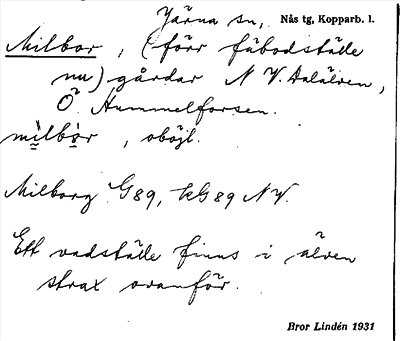 Järna sn, Nås tg, Kopparb. l.
Milbor, (förr fäbodställe
nu) gårdar N V. Dalälven,
Ö. Hummelforsen.
mìlbòr, oböjl.
Milborg G 89, kG 89 NV.
Ett vadställe finns i älven
strax ovanför.
Bror Lindén 1931